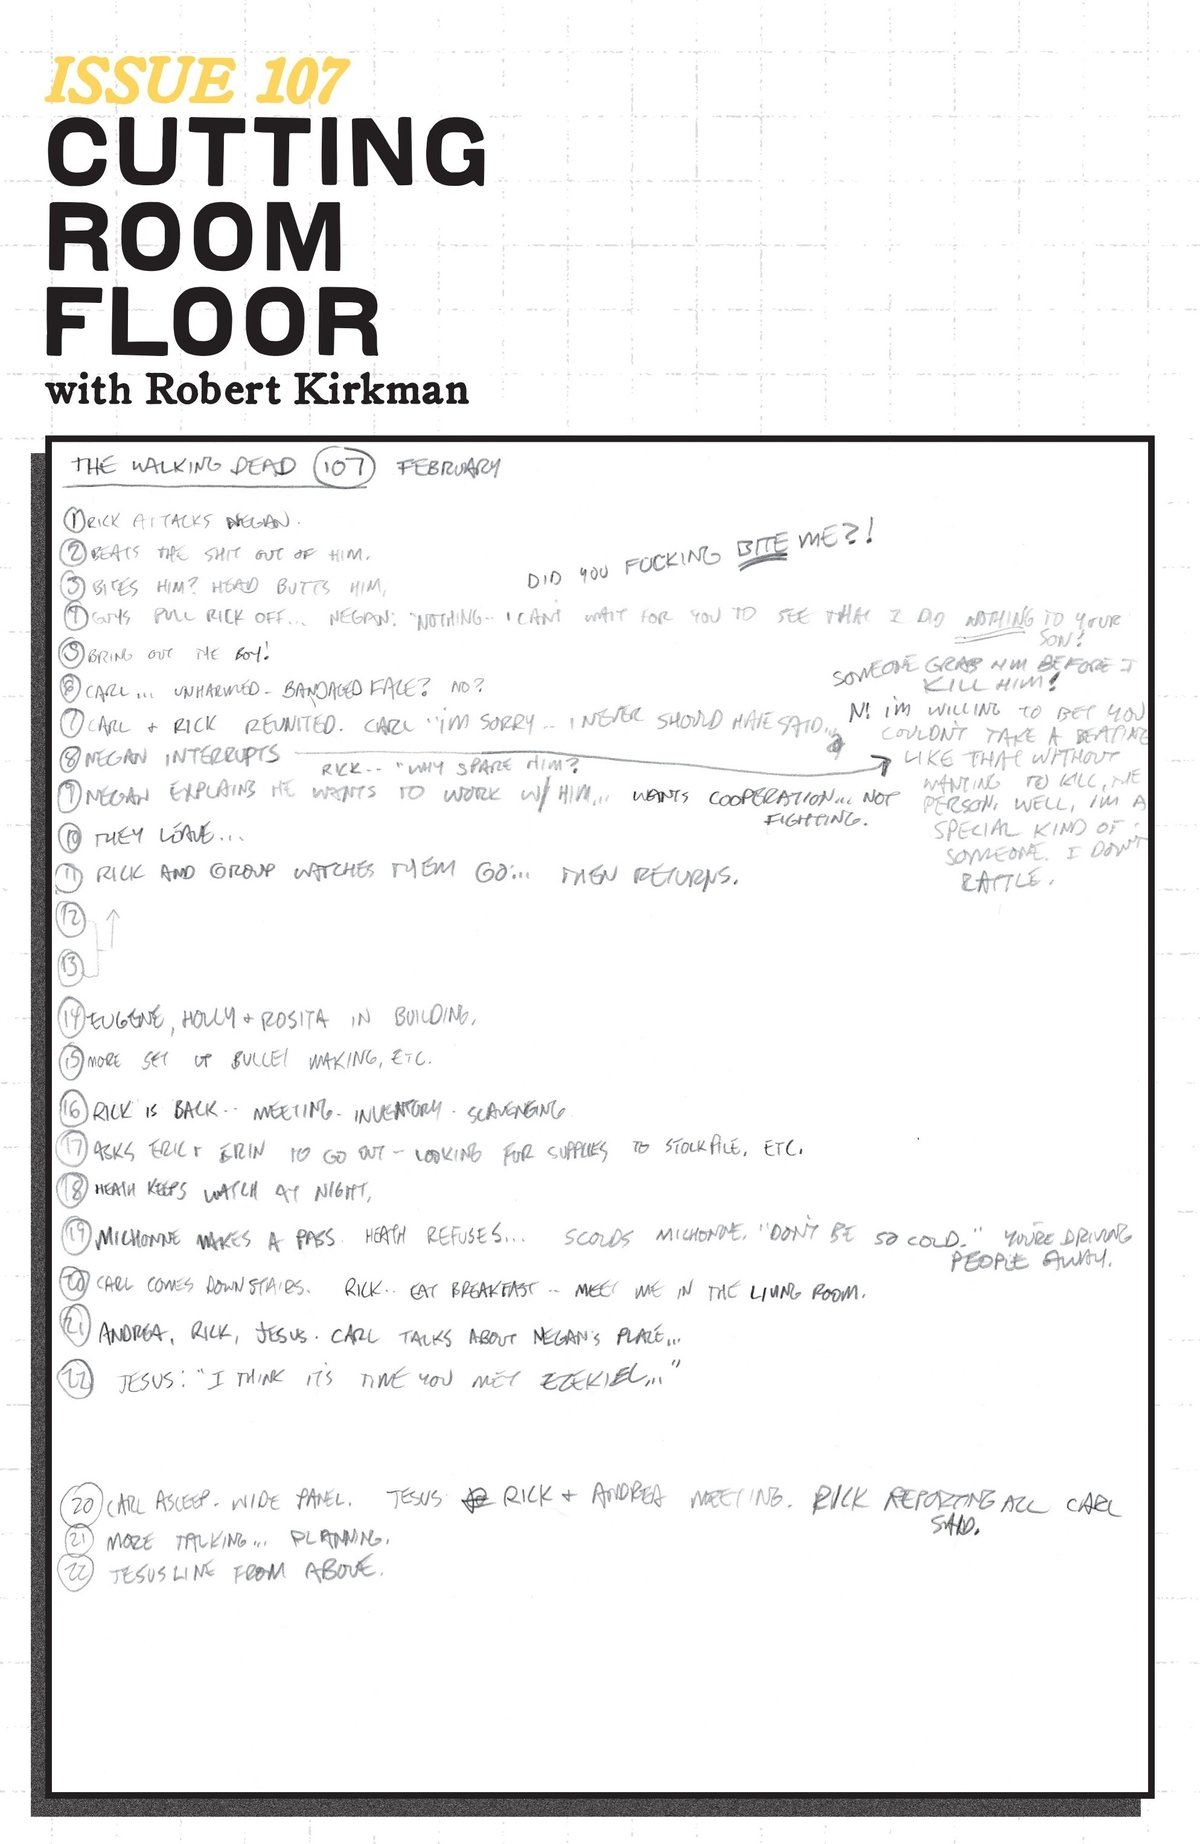 ISSUE 107
CUTTING
ROOM
FLOOR
with Robert Kirkman
THE WALKING DEAD 107 FEBRUARY
1 RICK ATTACKS NEGAN.
2 BEATS THE SHIT OUT OF HIM.
DID YOU FUCKING BITE ME?!
3 BITES HIM? HEAD BUTTS HIM,
4 GUYS PULL RICK OFF... NEGAN: "NOTHING-- I CAN'T WAIT FOR YOU TO SEE THAT I DID NOTHING TO YOUR
SON!
5 BRING OUT THE BOY!
SOMEONE GRAB HIM BEFORE I
KILL HIM!
6 CARL... UNHARMED- BANDAGED FACE? NO?
7 CARL + RICK REUNITED. CARL "I'M SORRY-- I NEVER SHOULD HAVE SAID...
8 NEGAN INTERRUPTS
N! I'M WILLING TO BET YOU
COULDN'T TAKE A BEATING
LIKE THAT WITHOUT
WANTING TO KILL THE
PERSON. WELL, I'M A
SPECIAL KIND OF
SOMEONE. I DON'T
RATTLE.
RICK-- "WHY SPARE HIM?
9 NEGAN EXPLAINS HE WANTS TO WORK W/ HIM... WANTS COOPERATION... NOT
FIGHTING.
10 THEY LEAVE...
11 RICK AND GROUP WATCHES THEM GO... THEN RETURNS.
12
13
14 EUGENE, HOLLY + ROSITA IN BUILDING.
15 MORE SET UP BULLET MAKING, ETC.
16 RICK IS BACK-- MEETING- INVENTORY- SCAVENGING
17 ASKS ERIC + ERIN TO GO OUT - LOOKING FOR SUPPLIES TO STOCKPILE, ETC.
18 HEATH KEEPS WATCH AT NIGHT.
19 MICHONNE MAKES A PASS. HEATH REFUSES... SCOLDS MICHONNE. "DON'T BE SO COLD." YOU'RE DRIVING
PEOPLE AWAY.
20 CARL COMES DOWNSTAIRS. RICK-- EAT BREAKFAST -- MEET ME IN THE LIVING ROOM.
21 ANDREA, RICK, JESUS. CARL TALKS ABOUT NEGAN'S PLACE...
22 JESUS: "I THINK IT'S TIME YOU MET EZEKIEL..."
20 CARL ASLEEP. WIDE PANEL. JESUS RICK + ANDREA MEETING. RICK REPORTING ALL CARL
SAID.
21 MORE TALKING... PLANNING.
22 JESUS LINE FROM ABOVE.